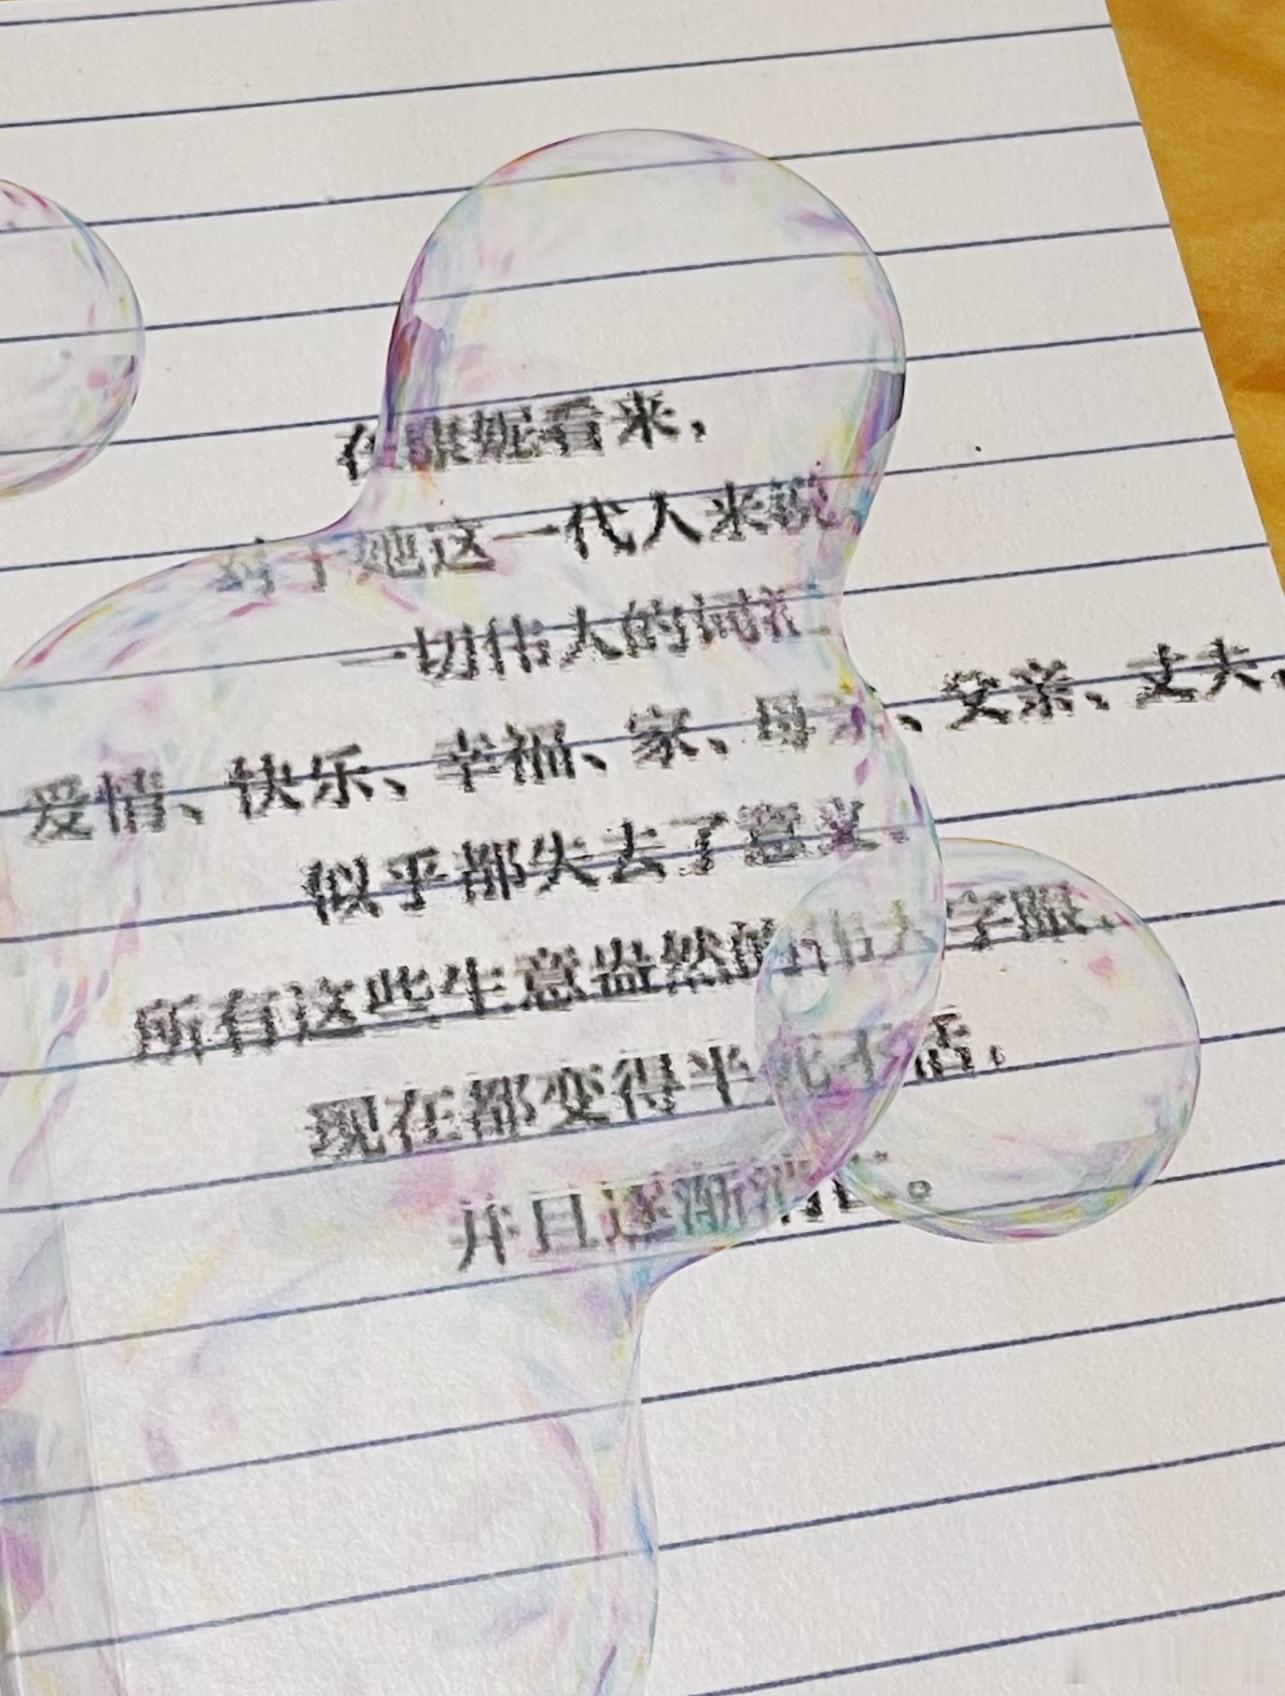 在康妮看来，
对于她这一代人来说，
一切伟大的词汇
爱情、快乐、幸福、家、母亲、父亲、丈夫，
似乎都失去了意义，
所有这些生意盎然的伟大字眼，
现在都变得半死不活，
并且逐渐消亡。